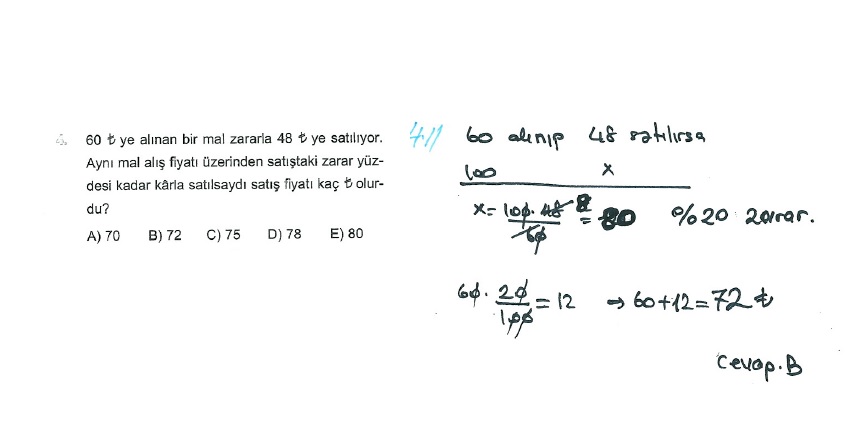 4. 60 ₺ ye alınan bir mal zararla 48 ₺ ye satılıyor.
Aynı mal alış fiyatı üzerinden satıştaki zarar yüz-
desi kadar kârla satılsaydı satış fiyatı kaç ₺ olur-
du?
A) 70 B) 72 C) 75 D) 78 E) 80
4// 60 alınıp 48 satılırsa
100 x
x = 100.48 8 = 80 %20 zarar.
60
60 . 20 = 12 → 60+12=72 ₺
100
Cevap.B